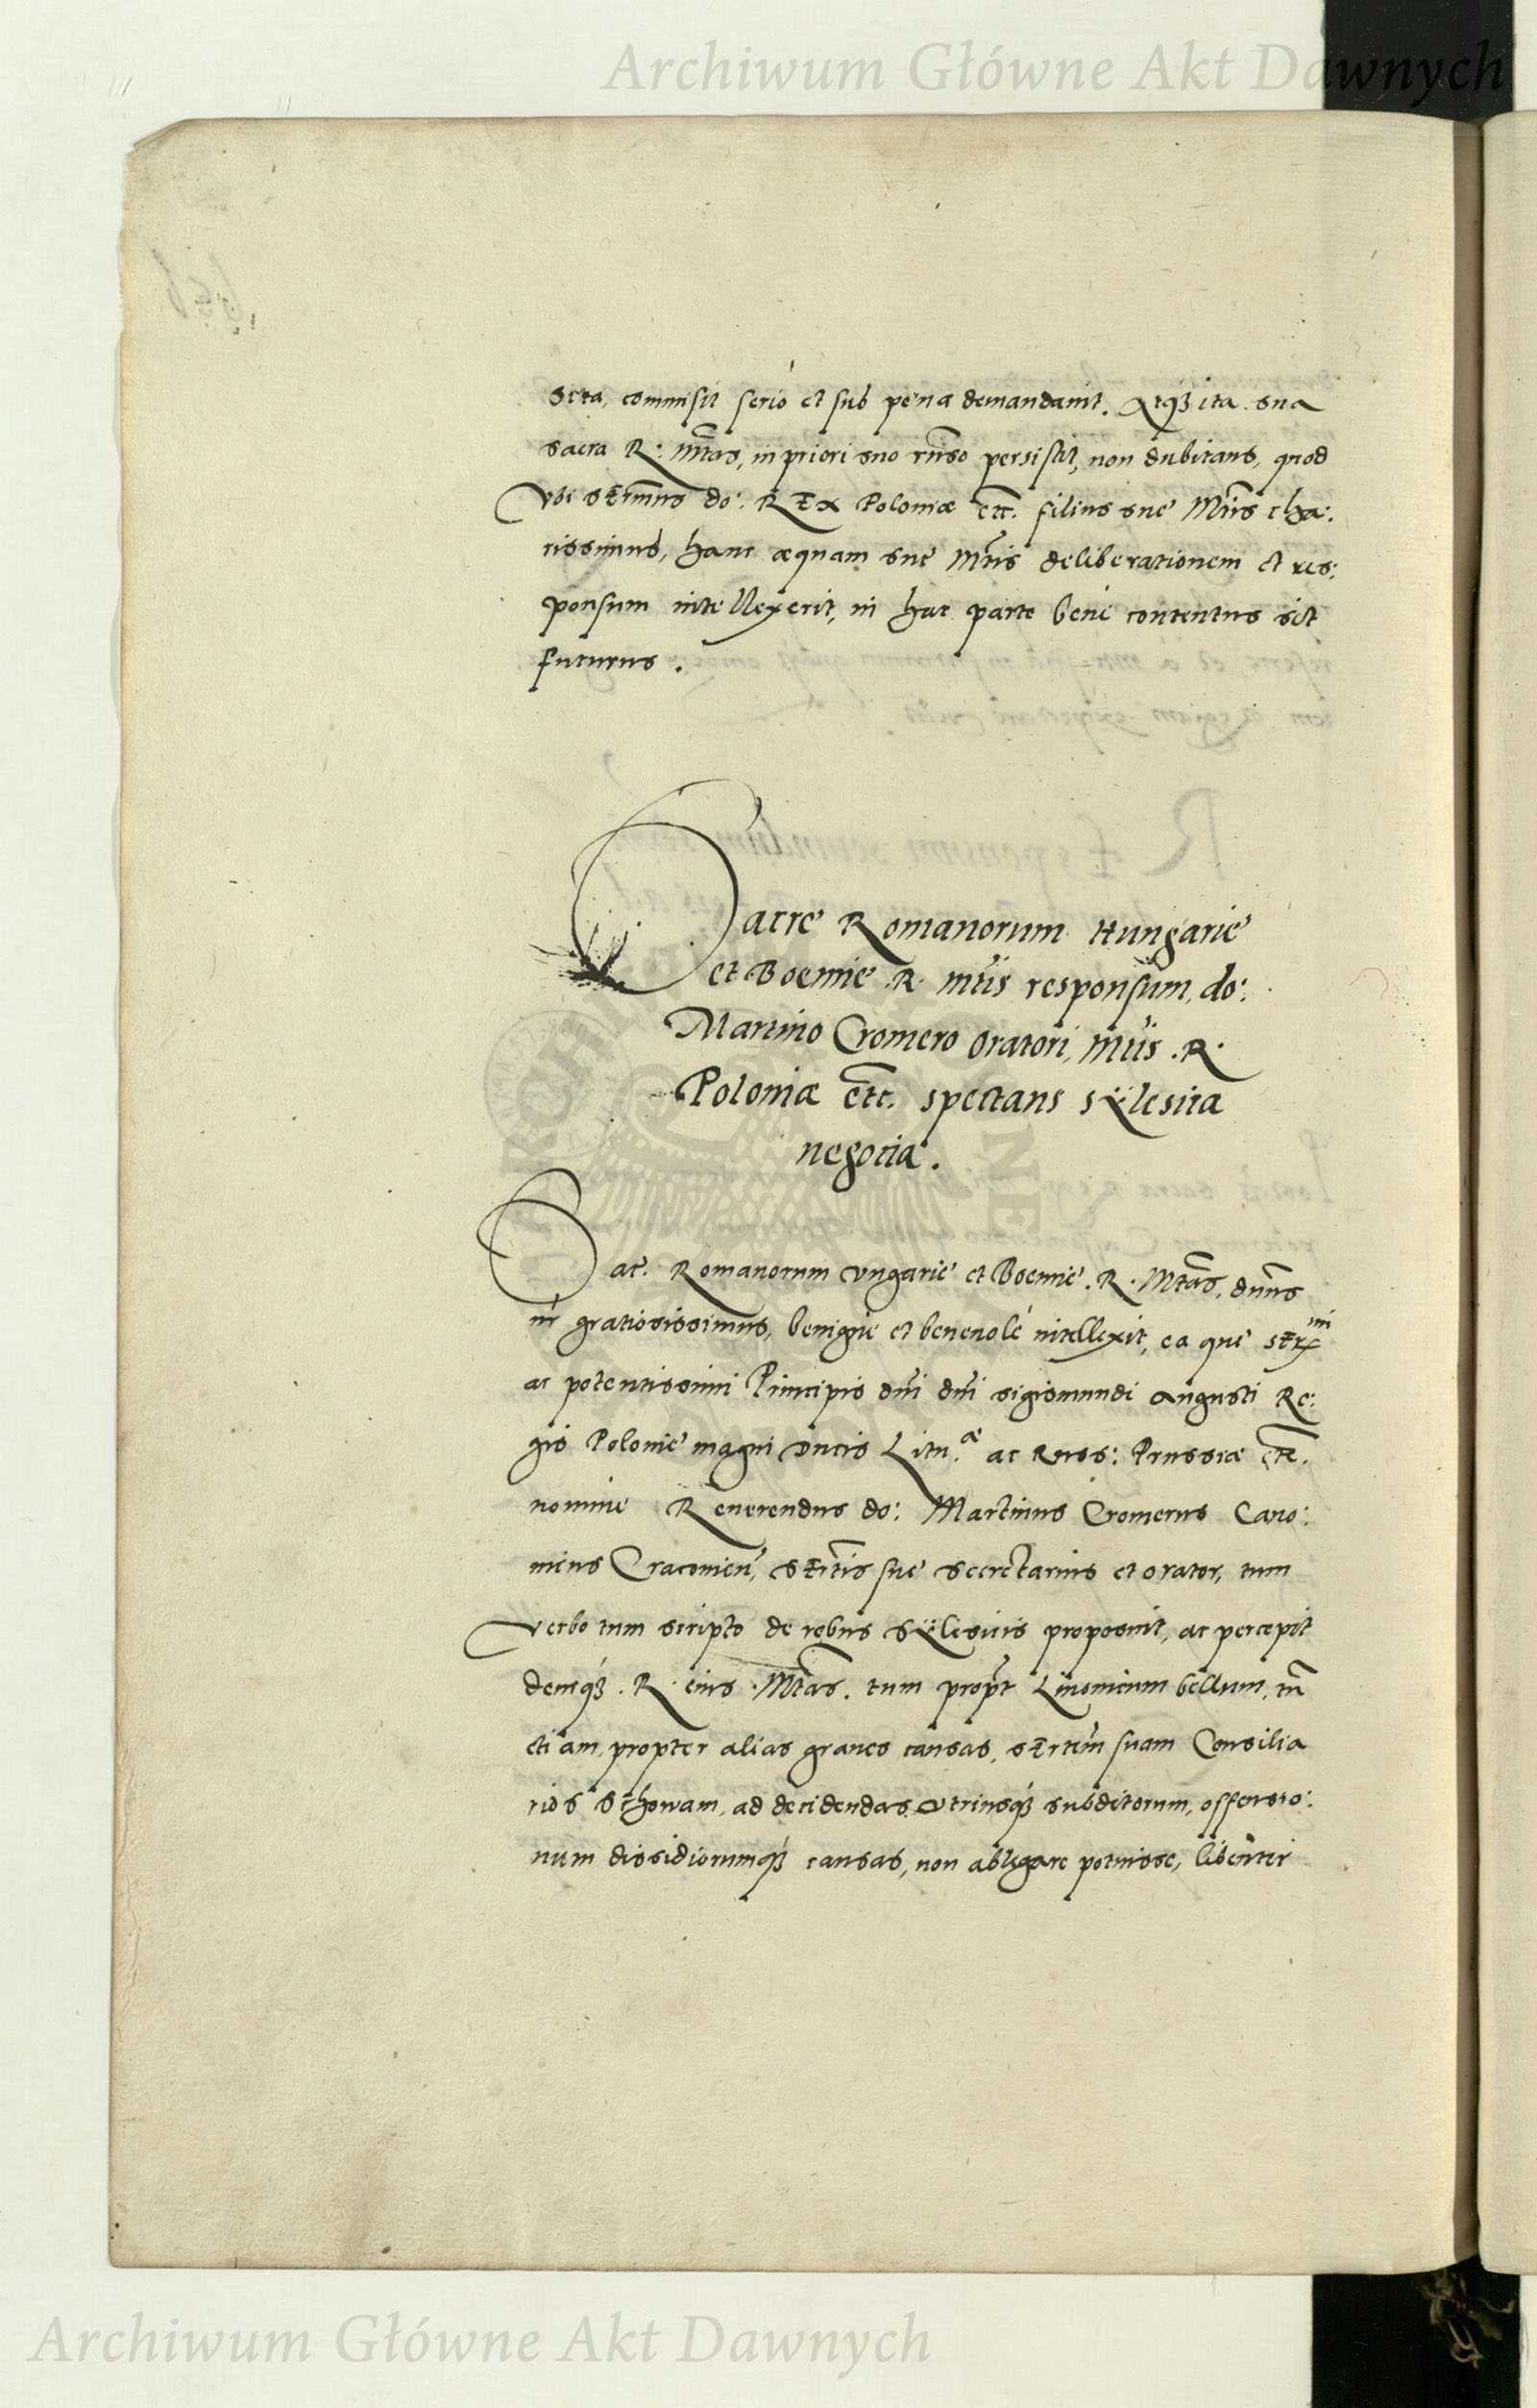 Archiwum Główne Akt Dawnych
dicta, commisit serio et sub pena demandavit. Atq3 ita sua
sacra R: Mtas, in priori suo rnso persistit, non dubitans, quod
Vbi sermus do: REx Poloniæ etc. filius sue Mtis cha:
rissimus, hanc æquam sue Mtis deliberationem et res:
ponsum intellexerit, in hac parte bene contentus sit
futurus.
Sacre Romanorum Hungarie
et Boemie R. Mtis responsum, do:
Martino Cromero Oratori, Mtis. R.
Poloniæ etc. spectans sÿlesita
negotia.
Sac. Romanorum Vngarie et Boemie. R. Mtas, dnns
nr gratiosissimus, benigne et benevole intellexit, ea que ser
ac potentissimi Principis dni dni Sigismundi Augusti Re:
gis Polonie magni Ducis Litu.æ ac Russ: Prussiæ etc.
nomine Reverendus do: Martinus Cromerus Cano:
nicus Cracovien, sertis sue secretarius et orator, tum
verbo tum scripto de rebus Sÿlesiticis proposuit, ac percepit
deniq3. R. eius. Mtas. tum propt Livonicum bellum, tu
etiam, propter alias graves causas, sertem suam Consilia
rios Schowam, ad decidendas utriusq3 subditorum, offensio:
num dissidiorumq3 causas, non ablegare potuisse, libenter
Archiwum Główne Akt Dawnych